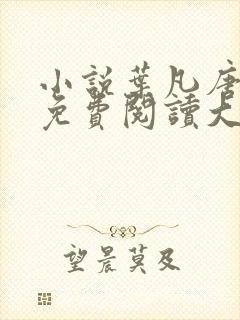 小說葉凡唐
免費閱讀大
望晨莫及